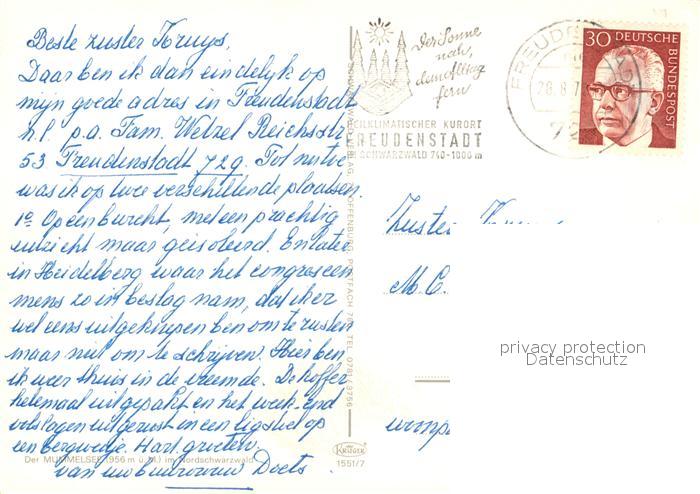 Beste zuster Kruys,
Daar ben ik dan eindelyk op
mijn goede adres in Freudenstadt
n.l. p.a. Fam. Wetzel Reichsstr.
53 Freudenstadt 729. Tot nu toe
was ik op twee verschillende plaatsen.
1e Op een burcht, met een prachtig
uitzicht maar geisoleerd. En later
in Heidelberg waar het congres een
mens zo in beslag nam, dat ik er
wel eens uitgeknepen ben om te rusten
maar niet om te schrijven. Hier ben
ik weer thuis in de vreemde. De koffer
helemaal uitgepakt en het week-end
volslagen uitgerust in een ligstoel op
een bergweitje. Hart. groeten
van uw buurvrouw Doets
Der MUMMELSEE (956 m ü. M.) im Nordschwarzwald
Der Sonne
nah,
dem Alltag
fern
HEILKLIMATISCHER KURORT
FREUDENSTADT
SCHWARZWALD 740-1000 m
FREUD
28.8.7
72
30 DEUTSCHE BUNDESPOST
OFFENBURG, POSTFACH
TEL. 0781/3756
KRÜGER
1551/7
Zuster
M.C.
privacy protection
Datenschutz